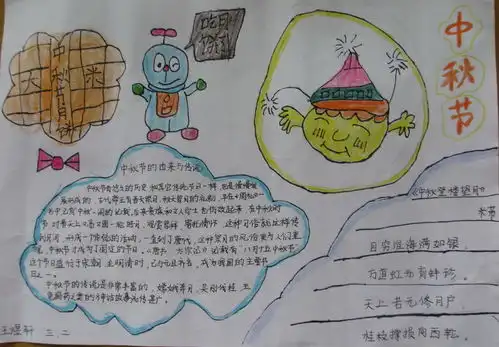 中秋节
中秋节月饼
大米
吃月饼了
中秋节的由来与传说
中秋节有悠久的历史,和其它传统节日一样,也是慢慢发
展形成的,古代帝王有春天祭日,秋天祭月的礼制,早在《周礼》一
书中,已有"中秋"一词的记载。后来贵族和文人学士也仿效起来,在中秋时
节,对着天上又亮又圆一轮明月,观赏祭拜,寄托情怀,这种习俗就这样传
到民间,形成一个传统的活动,一直到了唐代,这种祭月的风俗更为人们重
视,中秋节才成为了固定的节日,《唐书·太宗记》记载有"八月十五中秋节",
这个节日盛行于宋朝,至明清时,已与元旦齐名,成为我国的主要节
日之一。
中秋节的传说是非常丰富的,嫦娥奔月,吴刚伐桂,玉
兔捣药之类的神话故事流传甚广。
《中秋登楼望月》
米芾
目穷淮海满如银,
万道虹光育蚌珍。
天上若无修月户,
桂枝撑损向西轮。
三、二